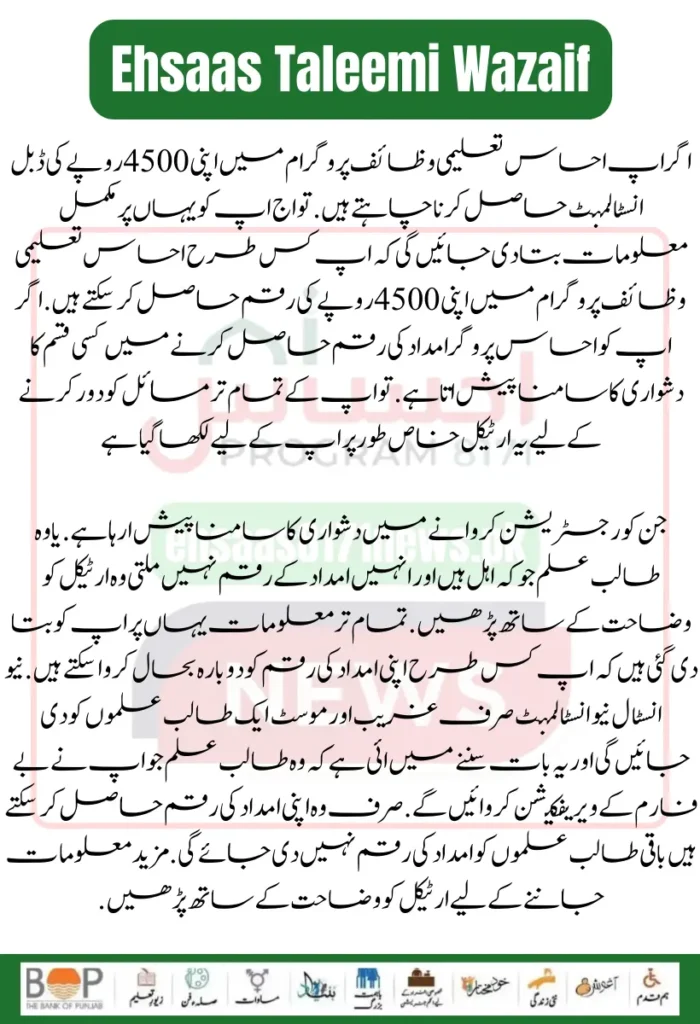 Ehsaas Taleemi Wazaif
اگر اپ احساس تعلیمی وظائف پروگرام میں اپنی 4500 روپے کی ڈبل
انسٹالمہٹ حاصل کرنا چاہتے ہیں. تو اج اپ کو یہاں پر مکمل
معلومات بتا دی جائیں گی کہ اپ کس طرح احساس تعلیمی
وظائف پروگرام میں اپنی 4500 روپے کی رقم حاصل کر سکتے ہیں. اگر
اپ کو احساس پروگرا امداد کی رقم حاصل کرنے میں کسی قسم کا
دشواری کا سامنا پیش اتا ہے. تو اپ کے تمام تر مسائل کو دور کرنے
کے لیے یہ ارٹیکل خاص طور پر اپ کے لیے لکھا گیا ہے
احساس
PROGRAM 8171
جن کو رجسٹریشن کروانے میں دشواری کا سامنا پیش ارہا ہے. یا وہ
ehsaas8171news.pk
طالب علم جو کہ اہل ہیں اور انہیں امداد کے رقم نہیں ملتی وہ ارٹیکل کو
وضاحت کے ساتھ پڑھیں. تمام تر معلومات یہاں پر اپ کو بتا
دی گئی ہیں کہ اپ کس طرح اپنی امداد کی رقم کو دوبارہ بحال کروا سکتے ہیں. نیو
NEWS
انسٹال نیو انسٹالمہٹ صرف غریب اور موسٹ ایک طالب علموں کو دی
جائیں گی اور یہ بات سننے میں ائی ہے کہ وہ طالب علم جو اپ نے بے
فارم کے ویریفکیشن کروائیں گے. صرف وہ اپنی امداد کی رقم حاصل کر سکتے
ہیں باقی طالب علموں کو امداد کی رقم نہیں دی جائے گی. مزید معلومات
جاننے کے لیے ارٹیکل کو وضاحت کے ساتھ پڑھیں.
BOP
THE BANK OF PUNJAB
زیور تعلیم
صلہ فن
مساوات
باہمت بزرگ
خود مختار
نئی زندگی
آغوش
ہم قدم